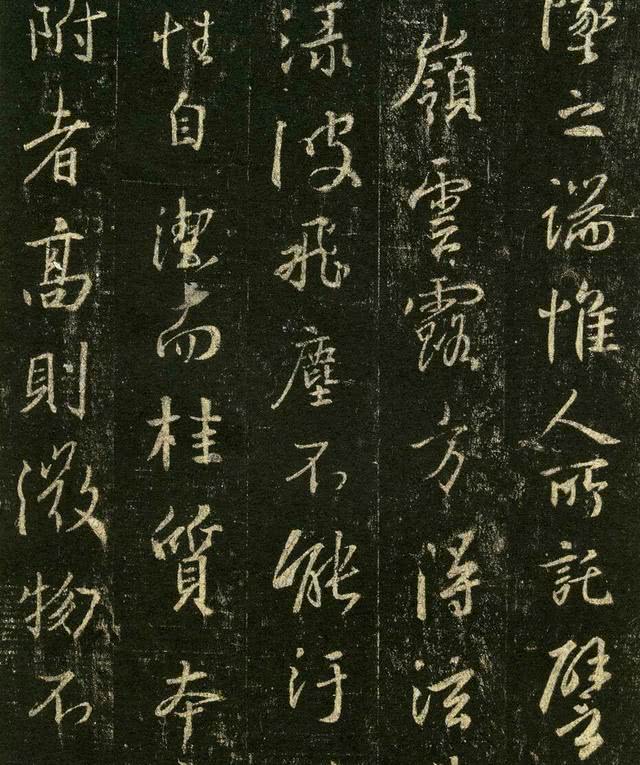 墜之端惟人所託譬
嶺雲露方得泫
淥波飛塵不能汙
性自潔而桂質本
附者高則微物不